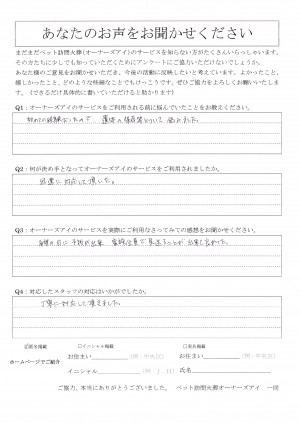 あなたのお声をお聞かせください
まだまだペット訪問火葬(オーナーズアイ)のサービスを知らない方がたくさんいらっしゃいます。
その方たちに少しでも知っていただくためにアンケートにご協力いただけないでしょうか。
あなた様のご意見をお聞かせいただき、今後の活動に反映したいと考えています。よかったこと、
嬉しかったこと、どのような些細なことでもけっこうです。ぜひ、ご協力をよろしくお願いいたしま
す。(できるだけ具体的に書いていただけると助かります)
Q1：オーナーズアイのサービスをご利用される前に悩んでいたことをお教えください。
初めての経験だったので、遺体の保存等について悩みました。
Q2：何が決め手となってオーナーズアイのサービスをご利用されましたか。
迅速に対応して頂いた。
Q3：オーナーズアイのサービスを実際にご利用なさってみての感想をお聞かせください。
希望の日に予約が出来 家族全員で見送ることが出来て良かった。
Q4：対応したスタッフの対応はいかがでしたか。
丁寧に対応して頂きました。
匿名掲載 □イニシャル掲載 □実名掲載
ホームページでご紹介
お住まい (例：中央区) お住まい (例：中央区)
イニシャル (例：J．H) 氏名
ご協力、本当にありがとうございました。 ペット訪問火葬オーナーズアイ 一同